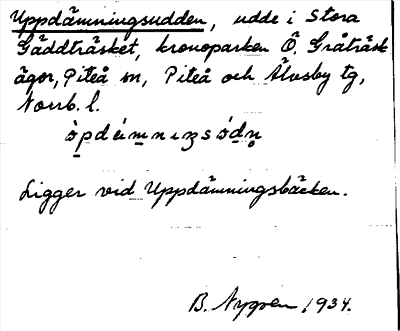 Uppdämningsudden, udde i Stora
Gäddträsket, kronoparken Ö. Gråträsk
ägor, Piteå sn, Piteå och Älvsby tg,
Norrb. l.
Ligger vid Uppdämningsbäcken.
B. Nygren 1934.